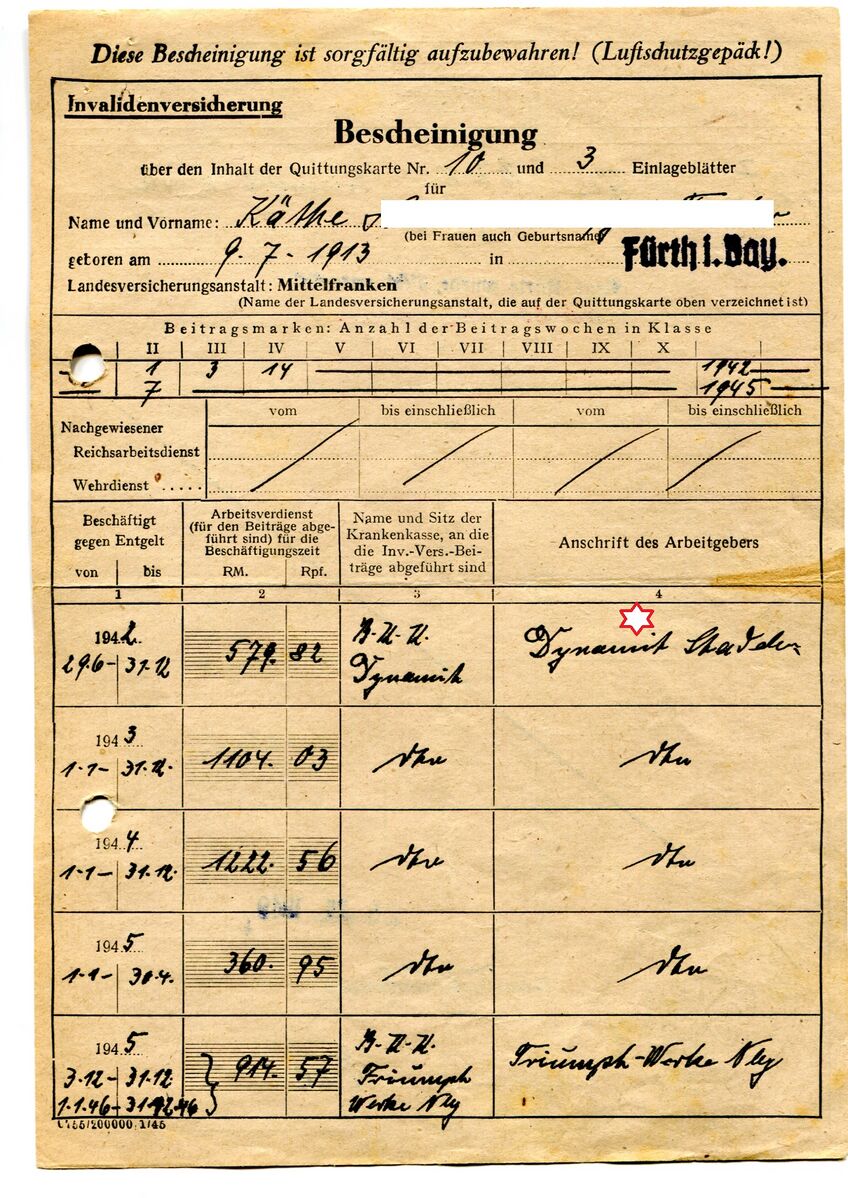 Diese Bescheinigung ist sorgfältig aufzubewahren! (Luftschutzgepäck!)
Invalidenversicherung
Bescheinigung
über den Inhalt der Quittungskarte Nr. 10 und 3 Einlageblätter
für
Name und Vorname: Käthe
(bei Frauen auch Geburtsname)
geboren am 9.7.-1913 in Fürth i. Bay.
Landesversicherungsanstalt: Mittelfranken
(Name der Landesversicherungsanstalt, die auf der Quittungskarte oben verzeichnet ist)
Beitragsmarken: Anzahl der Beitragswochen in Klasse
II III IV V VI VII VIII IX X
1 3 14 1942
7 1945
vom bis einschließlich vom bis einschließlich
Nachgewiesener
Reichsarbeitsdienst
Wehrdienst .....
Beschäftigt gegen Entgelt
von bis
Arbeitsverdienst (für den Beiträge abgeführt sind) für die Beschäftigungszeit
RM. Rpf.
Name und Sitz der Krankenkasse, an die die Inv.-Vers.-Beiträge abgeführt sind
Anschrift des Arbeitgebers
1 2 3 4
1942
29.6 - 31.12 579. 82 B.K.K. Dynamit Dynamit Stadeln
1943
1.1 - 31.12. 1104. 03 dto dto
1944
1.1 - 31.12. 1222. 56 dto dto
1945
1.1 - 30.4. 360. 95 dto dto
1945
3.12 - 31.12 914. 57 B.K.K. Triumph Werke Nbg Triumph-Werke Nbg
1.1.46 - 31.12.46
200000 1/45